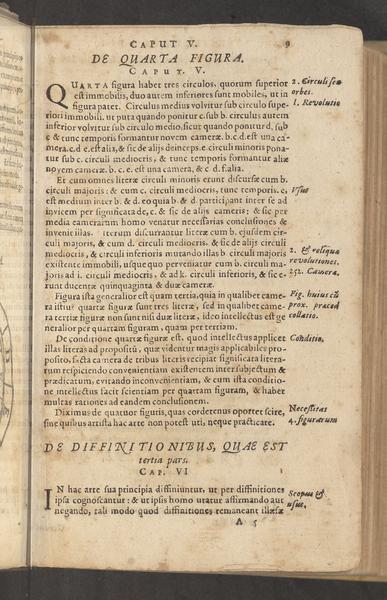 CAPUT V. 9
DE QUARTA FIGURA.
CAPUT. V.
QUARTA figura habet tres circulos, quorum superior
est immobilis, duo autem inferiores sunt mobiles, ut in
figura patet. Circulus medius volvitur sub circulo supe-
riori immobili. ut puta quando ponitur c. sub b. circulus autem
inferior volvitur sub circulo medio, sicut quando ponitur d. sub
c & tunc formantur novem cameræ. b.c.d. est una ca-
mera. c.d e. est alia, & sic de aliis deinceps. e. circuli minoris pona-
tur sub c. circuli mediocris, & tunc formantur aliæ
novem cameræ. b. c. e. est una camera, & c d. f. alia.
Et cum omnes literæ circuli minoris erunt discursæ cum b.
circuli majoris: & cum c. circuli mediocris, tunc c.
est medium inter b. & d. eo quia b. & d. participant inter se ad
invicem per significata de, c. & sic de aliis cameris; & sic per
media camerarum homo venatur necessarias conclusiones &
invenit illas. iterum discurrantur literæ cum b. ejusdem cir-
culi majoris, & cum d. circuli mediocris. & sic de aliis circuli
mediocris, & circuli inferioris mutando illas b circuli majoris
existente immobili, usque quo perveniatur cum b. circuli ma-
joris ad i. circuli mediocris, & ad k. circuli inferioris, & sic e-
runt ducentæ quinquaginta & duæ cameræ.
Figura ista generalior est quam tertia, quia in qualibet came-
ra istius quartæ figuræ sunt tres literæ, sed in qualibet came-
ra tertiæ figuræ non sunt nisi duæ literæ, ideo intellectus est ge
neralior per quartam figuram, quam per tertiam.
De conditione quartæ figuræ est, quod intellectus applicet
illas literas ad propositū, quæ videntur magis applicabiles pro-
posito, facta camera de tribus literis recipiat significata litera-
rum respiciendo convenientiam existentem inter subjectum &
prædicatum, evitando inconvenientiam, & cum ista conditio-
ne intellectus facit scientiam per quartam figuram, & habet
multas rationes ad eandem conclusionem.
Diximus de quatuor figuris, quas cordetenus oportet scire,
sine quibus artista hac arte non potest uti, neque practicare.
DE DIFFINITIONIBUS, QUAE EST
tertia pars.
CAP. VI
IN hac arte sua principia diffiniuntur, ut per diffinitiones
ipsa cognoscantur: & ut ipsis homo utatur affirmando aut
negando, tali modo quod diffinitiones remaneant illæsæ
A 5
2. Circuli seu
orbes.
1. Revolutio
Usus
2. & reliquæ
revolutiones.
252. Cameræ.
Fig. huius cū
prox. præced
collatio.
Conditio.
Necessitas
4. figurarum
Scopus &
usus.